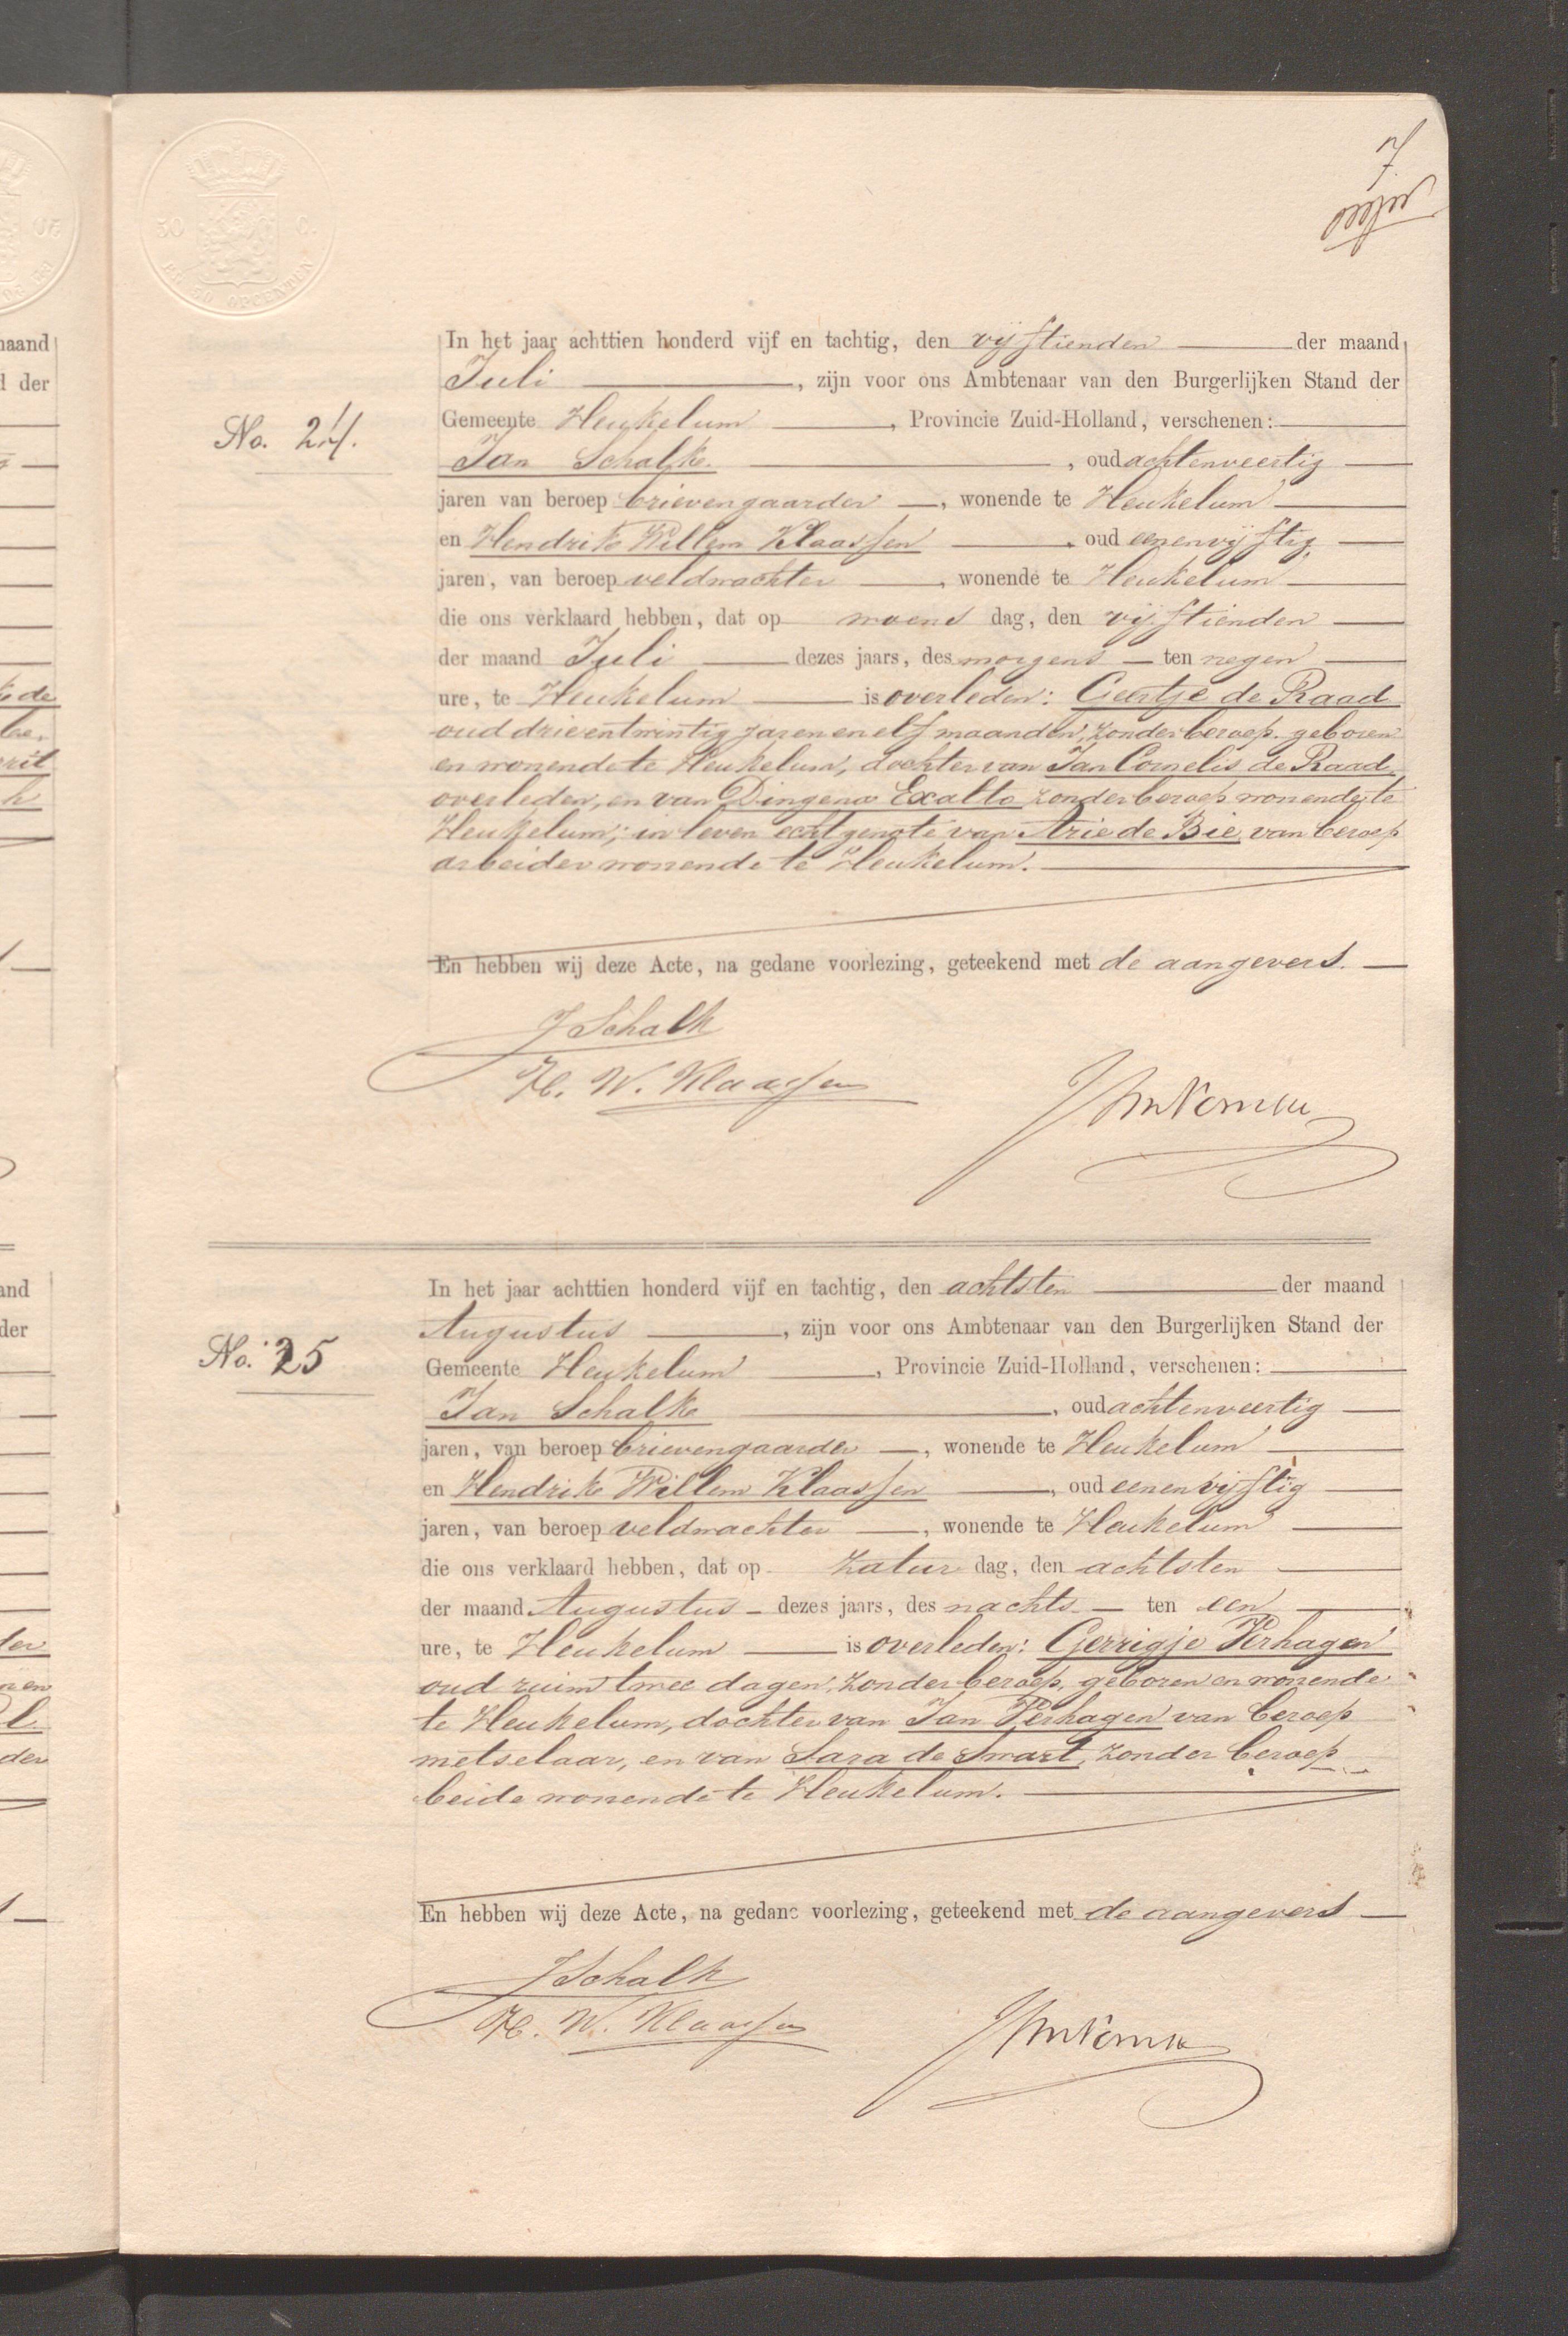 7
50 C.
EN 50 OPCENTEN
In het jaar achttien honderd vijf en tachtig, den vijftienden der maand
Juli, zijn voor ons Ambtenaar van den Burgerlijken Stand der
No. 24.
Gemeente Heukelum, Provincie Zuid-Holland, verschenen:
Jan Schalk, oud achtenveertig
jaren van beroep brievengaarder, wonende te Heukelum
en Hendrik Willem Klaassen, oud eenenvijftig
jaren, van beroep veldwachter, wonende te Heukelum
die ons verklaard hebben, dat op maandag, den vijftienden
der maand Juli dezes jaars, des morgens ten negen
ure, te Heukelum is overleden: Geertje de Raad
oud drieentwintig jaren en elf maanden, zonder beroep, geboren
en wonende te Heukelum, dochter van Jan Cornelis de Raad
overleden, en van Dingena Exalto zonder beroep wonende te
Heukelum; in leven echtgenote van Arie de Bie, van beroep
arbeider wonende te Heukelum.
En hebben wij deze Acte, na gedane voorlezing, geteekend met de aangevers.
J Schalk
H. W. Klaassen
In het jaar achttien honderd vijf en tachtig, den achtsten der maand
Augustus, zijn voor ons Ambtenaar van den Burgerlijken Stand der
No. 25
Gemeente Heukelum, Provincie Zuid-Holland, verschenen:
Jan Schalk, oud achtenveertig
jaren, van beroep brievengaarder, wonende te Heukelum
en Hendrik Willem Klaassen, oud eenenvijftig
jaren, van beroep veldwachter, wonende te Heukelum
die ons verklaard hebben, dat op Zaturdag, den achtsten
der maand Augustus dezes jaars, des nachts ten een
ure, te Heukelum is overleden: Gerrigje Verhagen
oud ruim twee dagen, zonder beroep, geboren en wonende
te Heukelum, dochter van Jan Verhagen van beroep
metselaar, en van Sara de Swart, zonder beroep
beide wonende te Heukelum.
En hebben wij deze Acte, na gedane voorlezing, geteekend met de aangevers
J Schalk
H. W. Klaassen